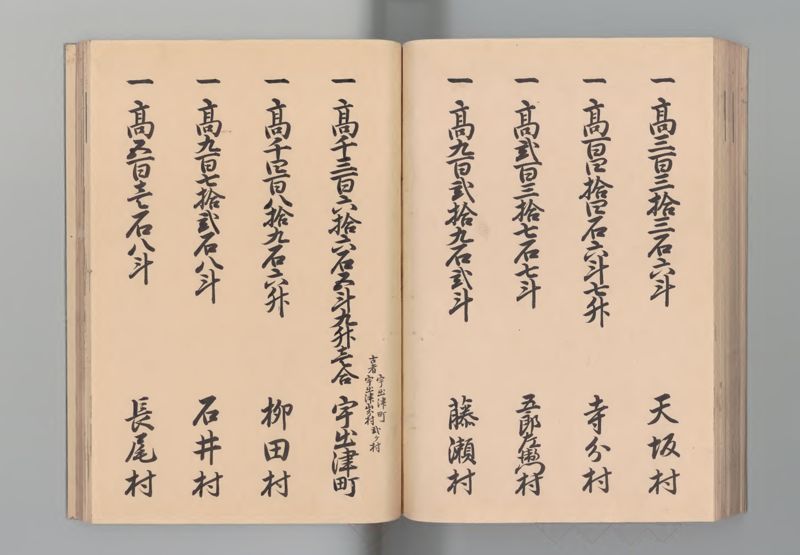 一 高三百三拾三石六斗 天坂村
一 高百四拾四石六斗七升 寺分村
一 高弐百三拾七石七斗 五郎左衛門村
一 高九百弐拾九石弐斗 藤瀬村
古者 宇出津町 宇出津山分村 弐ケ村
一 高千三百六拾六石五斗九升壱合 宇出津町
一 高千四百八拾九石六升 柳田村
一 高九百七拾弐石八斗 石井村
一 高五百壱石八斗 長尾村